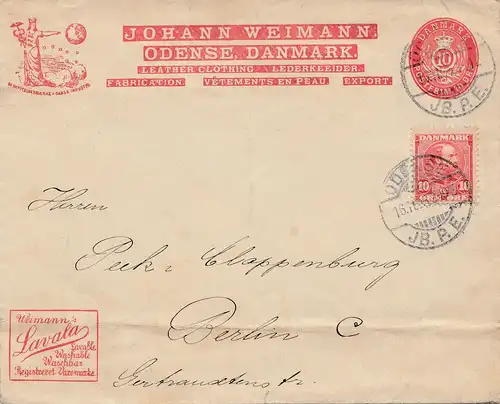 JOHANN WEIMANN.
ODENSE, DANMARK.
LEATHER CLOTHING LEDERKLEIDER.
FABRICATION VÊTEMENTS EN PEAU EXPORT.
DANMARK
10
JB.P.E.
DANMARK
10 10
ØRE
ODENSE
JB.P.E.
Herren
Peek & Cloppenburg
Berlin C
Gertraudtenstr.
Weimann's
Lavala
Lavable
Washable
Waschbar
Registreret Varemærke